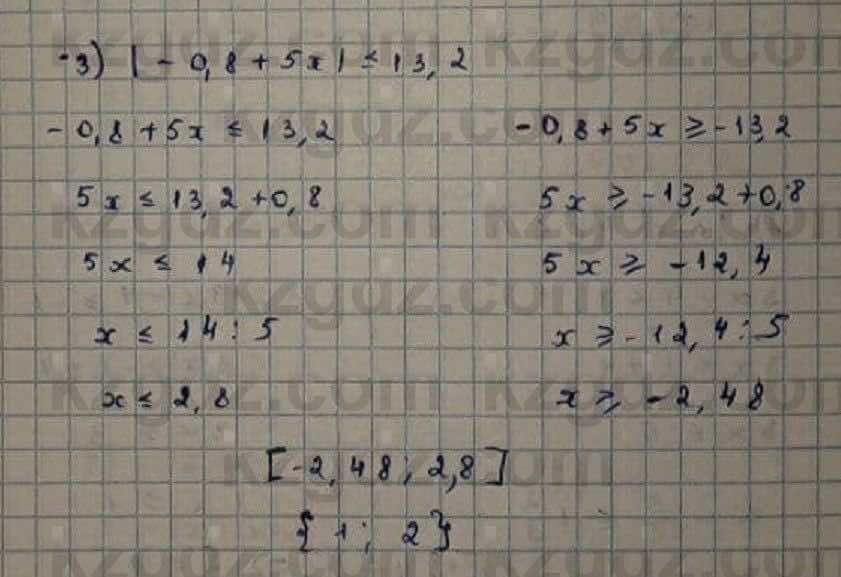 3) |-0,8+5x| ≤ 13,2
-0,8+5x ≤ 13,2
5x ≤ 13,2+0,8
5x ≤ 14
x ≤ 14:5
x ≤ 2,8
-0,8+5x ≥ -13,2
5x ≥ -13,2+0,8
5x ≥ -12,4
x ≥ -12,4:5
x ≥ -2,48
[-2,48; 2,8]
{1; 2}
kzgdz.com